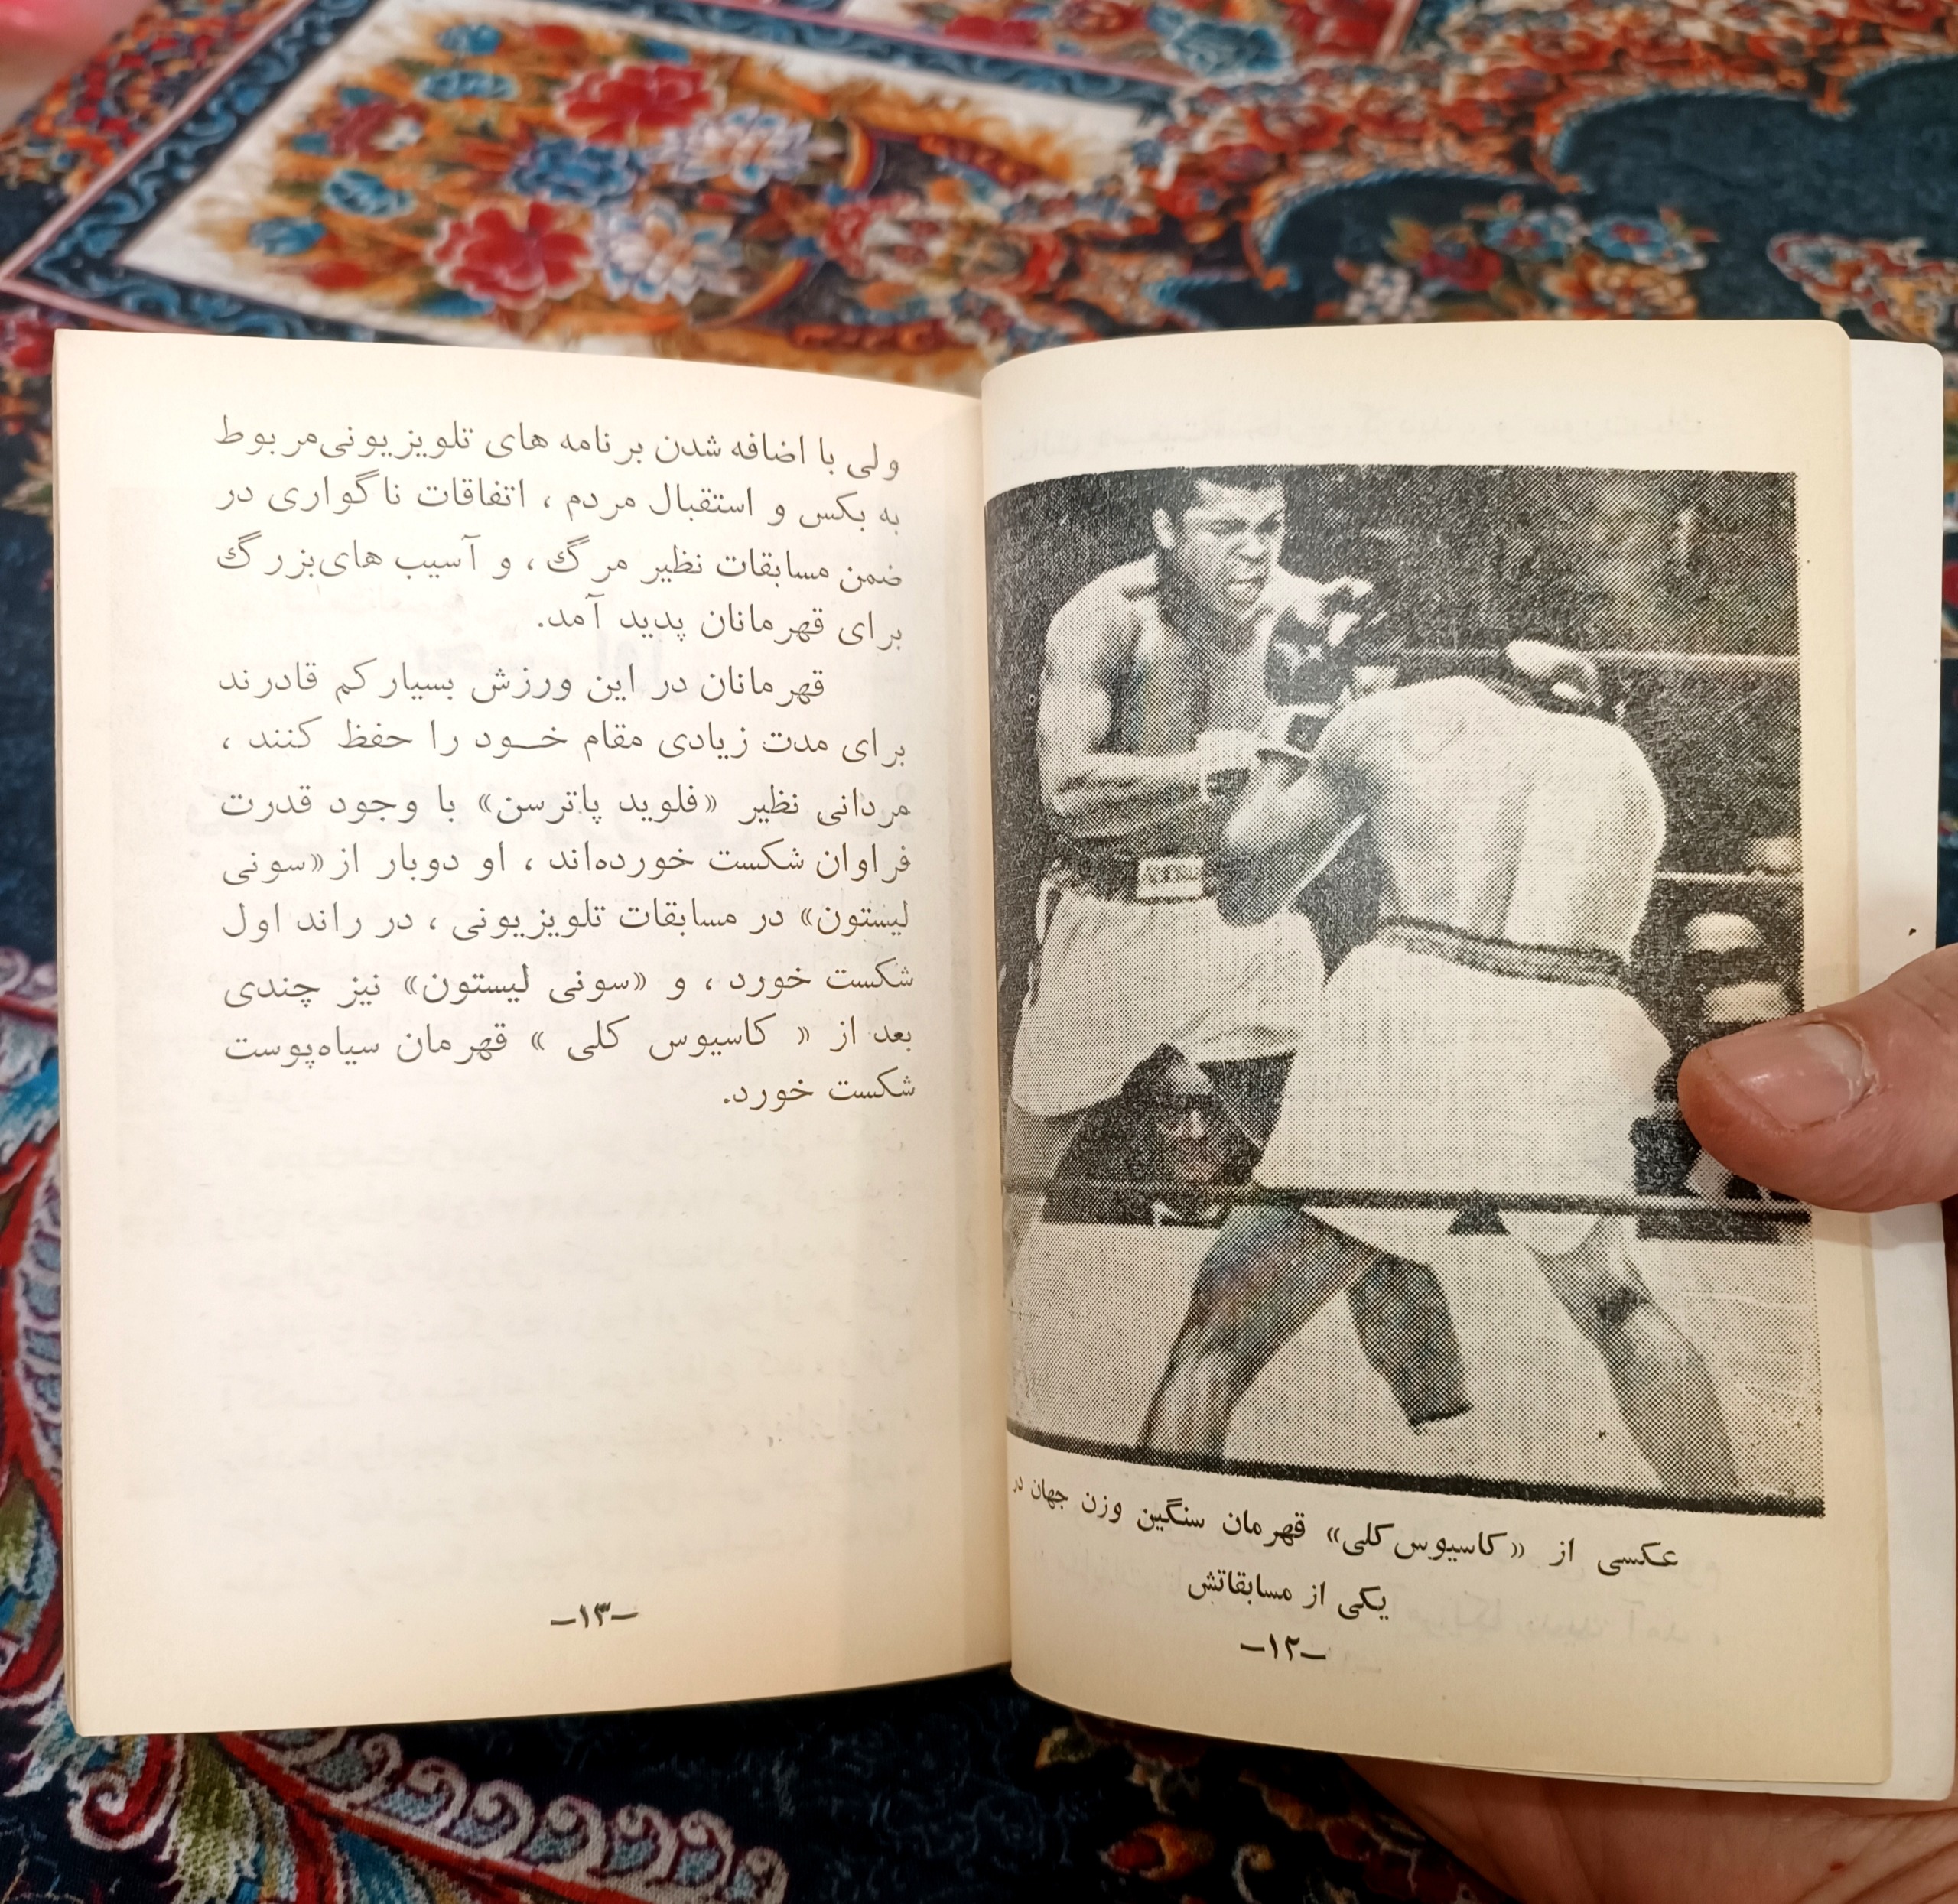 عکسی از «کاسیوس‌کلی» قهرمان سنگین وزن جهان در
یکی از مسابقاتش
–۱۲–
ولی با اضافه شدن برنامه های تلویزیونی‌مربوط
به بکس و استقبال مردم ، اتفاقات ناگواری در
ضمن مسابقات نظیر مرگ ، و آسیب های‌بزرگ
برای قهرمانان پدید آمد.
قهرمانان در این ورزش بسیارکم قادرند
برای مدت زیادی مقام خــود را حفظ کنند ،
مردانی نظیر «فلوید پاترسن» با وجود قدرت
فراوان شکست خورده‌اند ، او دوبار از«سونی
لیستون» در مسابقات تلویزیونی ، در راند اول
شکست خورد ، و «سونی لیستون» نیز چندی
بعد از « کاسیوس کلی » قهرمان سیاه‌پوست
شکست خورد.
–۱۳–